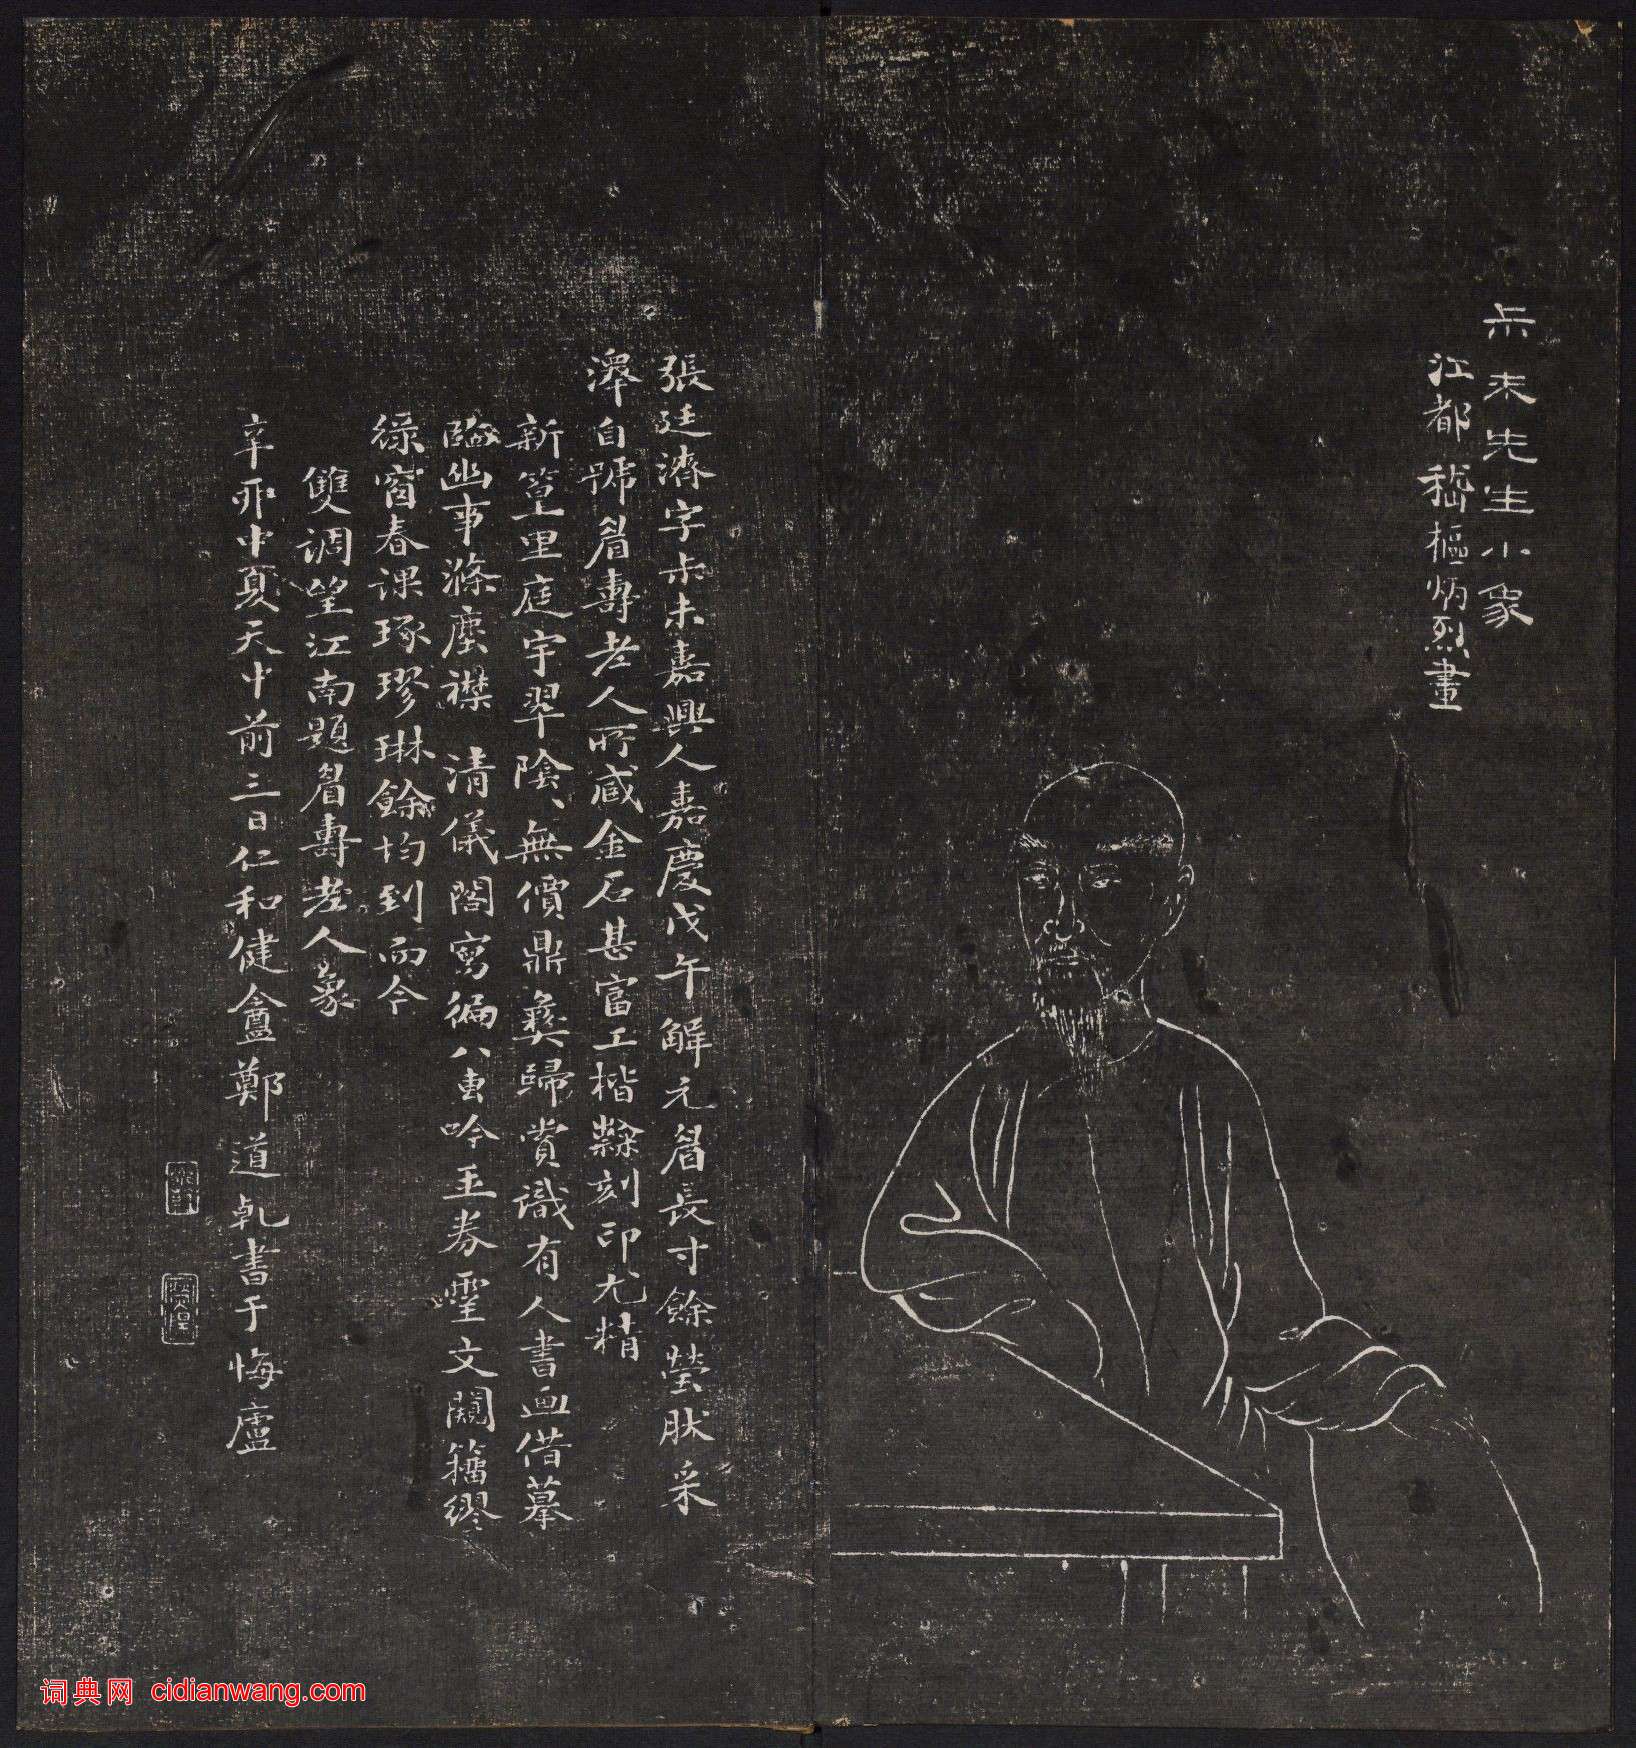 尗未先生小象
江都嵇樞炳烈畫
張廷濟字尗未嘉興人嘉慶戊午解元眉長寸餘瑩肰采
澤自號眉壽老人所臧金石甚富工楷隸刻印尤精
新篁里庭宇翠陰陰無價鼎彝歸賞識有人書画借摹
臨幽事滌塵襟 清儀閣寫徧八甎吟玉券靈文闚籀繆
綠窗春課琢璆琳餘均到而今
雙調望江南題眉壽老人象
辛亥中夏天中前三日仁和健盦鄭道乹書于悔廬
词典网 cidianwang.com